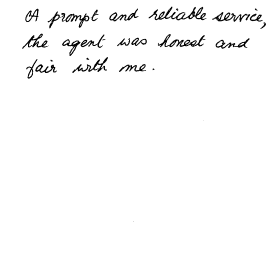 A prompt and reliable service,
the agent was honest and
fair with me.